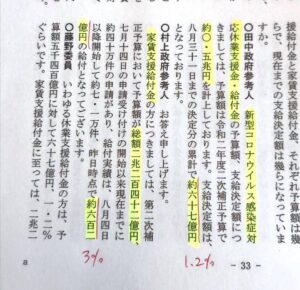 給付金と家賃支援給付金、それぞれ予算額は幾
らで、現在までの支給決定額は幾らになっていま
すか。
○田中政府参考人　新型コロナウイルス感染症対
応休業支援金・給付金の予算額、支給決定額につ
きましては、予算額は令和二年度二次補正予算で
約〇・五兆円を計上しております。支給決定額は、
八月三十一日までの決定分の累計で約六十七億円
となっております。
○村上政府参考人　お答え申し上げます。
家賃支援給付金の方につきましては、第二次補
正予算において予算額が総額二兆二百四十二億円、
七月十四日の申請受け付けの開始以来現在までに
約四十万件の申請があり、給付実績は、八月四日
以降開始して約七・一万件、昨日時点で約六百二
億円の給付となってございます。
○藤野委員　いわゆる休業支援給付金の方は、予
算額五千四百億円に対して六十七億円、一・二％
ぐらいです。家賃支援給付金に至っては、二兆二
3%
1.2%
- 33 -
a